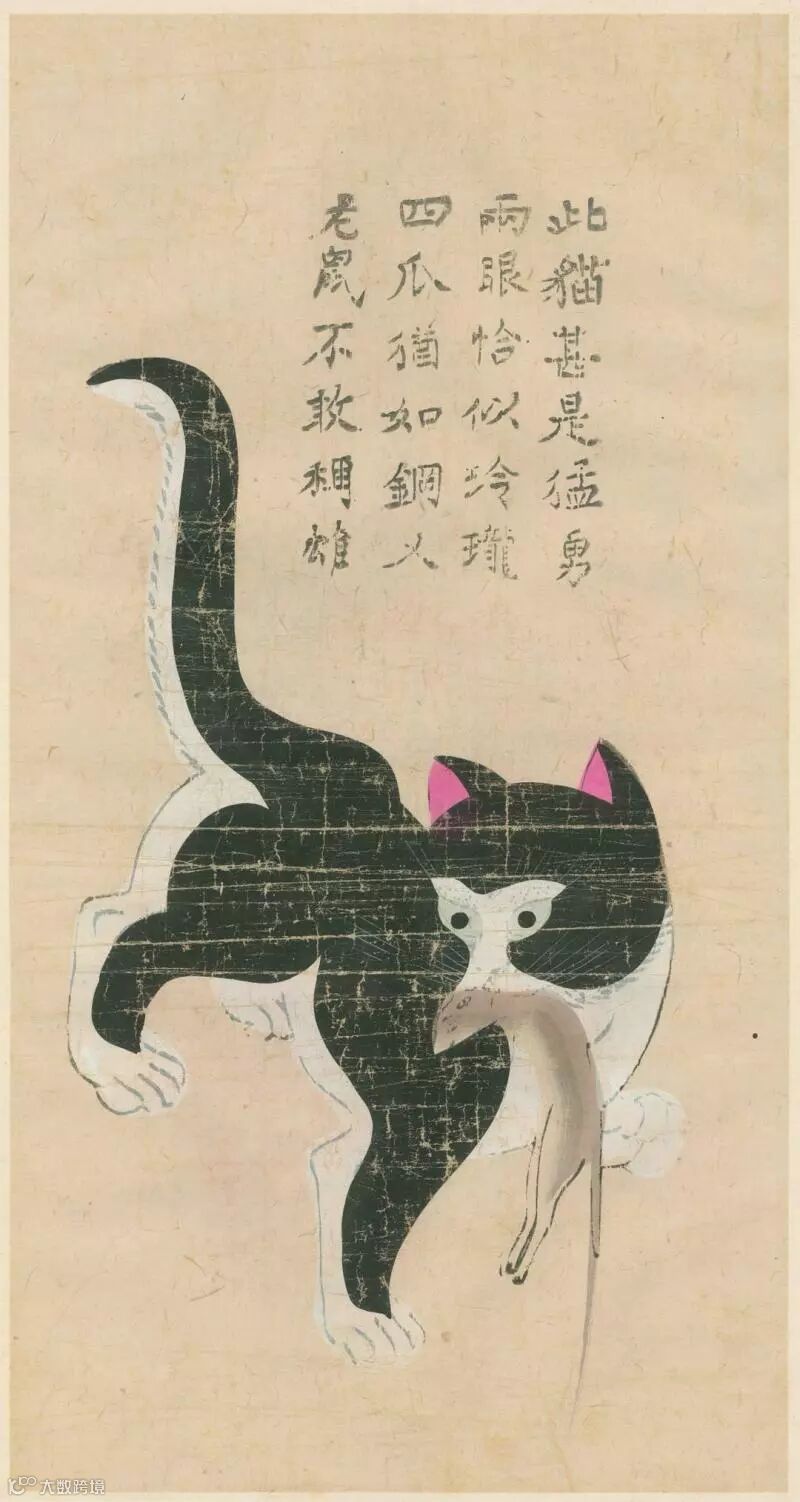 此貓甚是猛勇
兩眼恰似玲瓏
四瓜猶如鋼乂
老鼠不敢稱雄
大数跨境